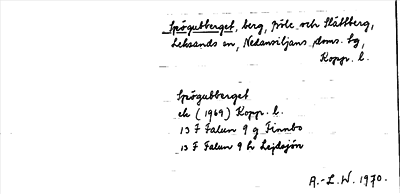 Spögubberget, berg, Böle och Slättberg,
Leksands sn, Nedansiljans doms. lg,
Kopp. l.
Spögubberget
ek (1969) Kopp. l.
13 F Falun 9 g Finnbo
13 F Falun 9 h Lejdsjön
A.-L. W. 1970.